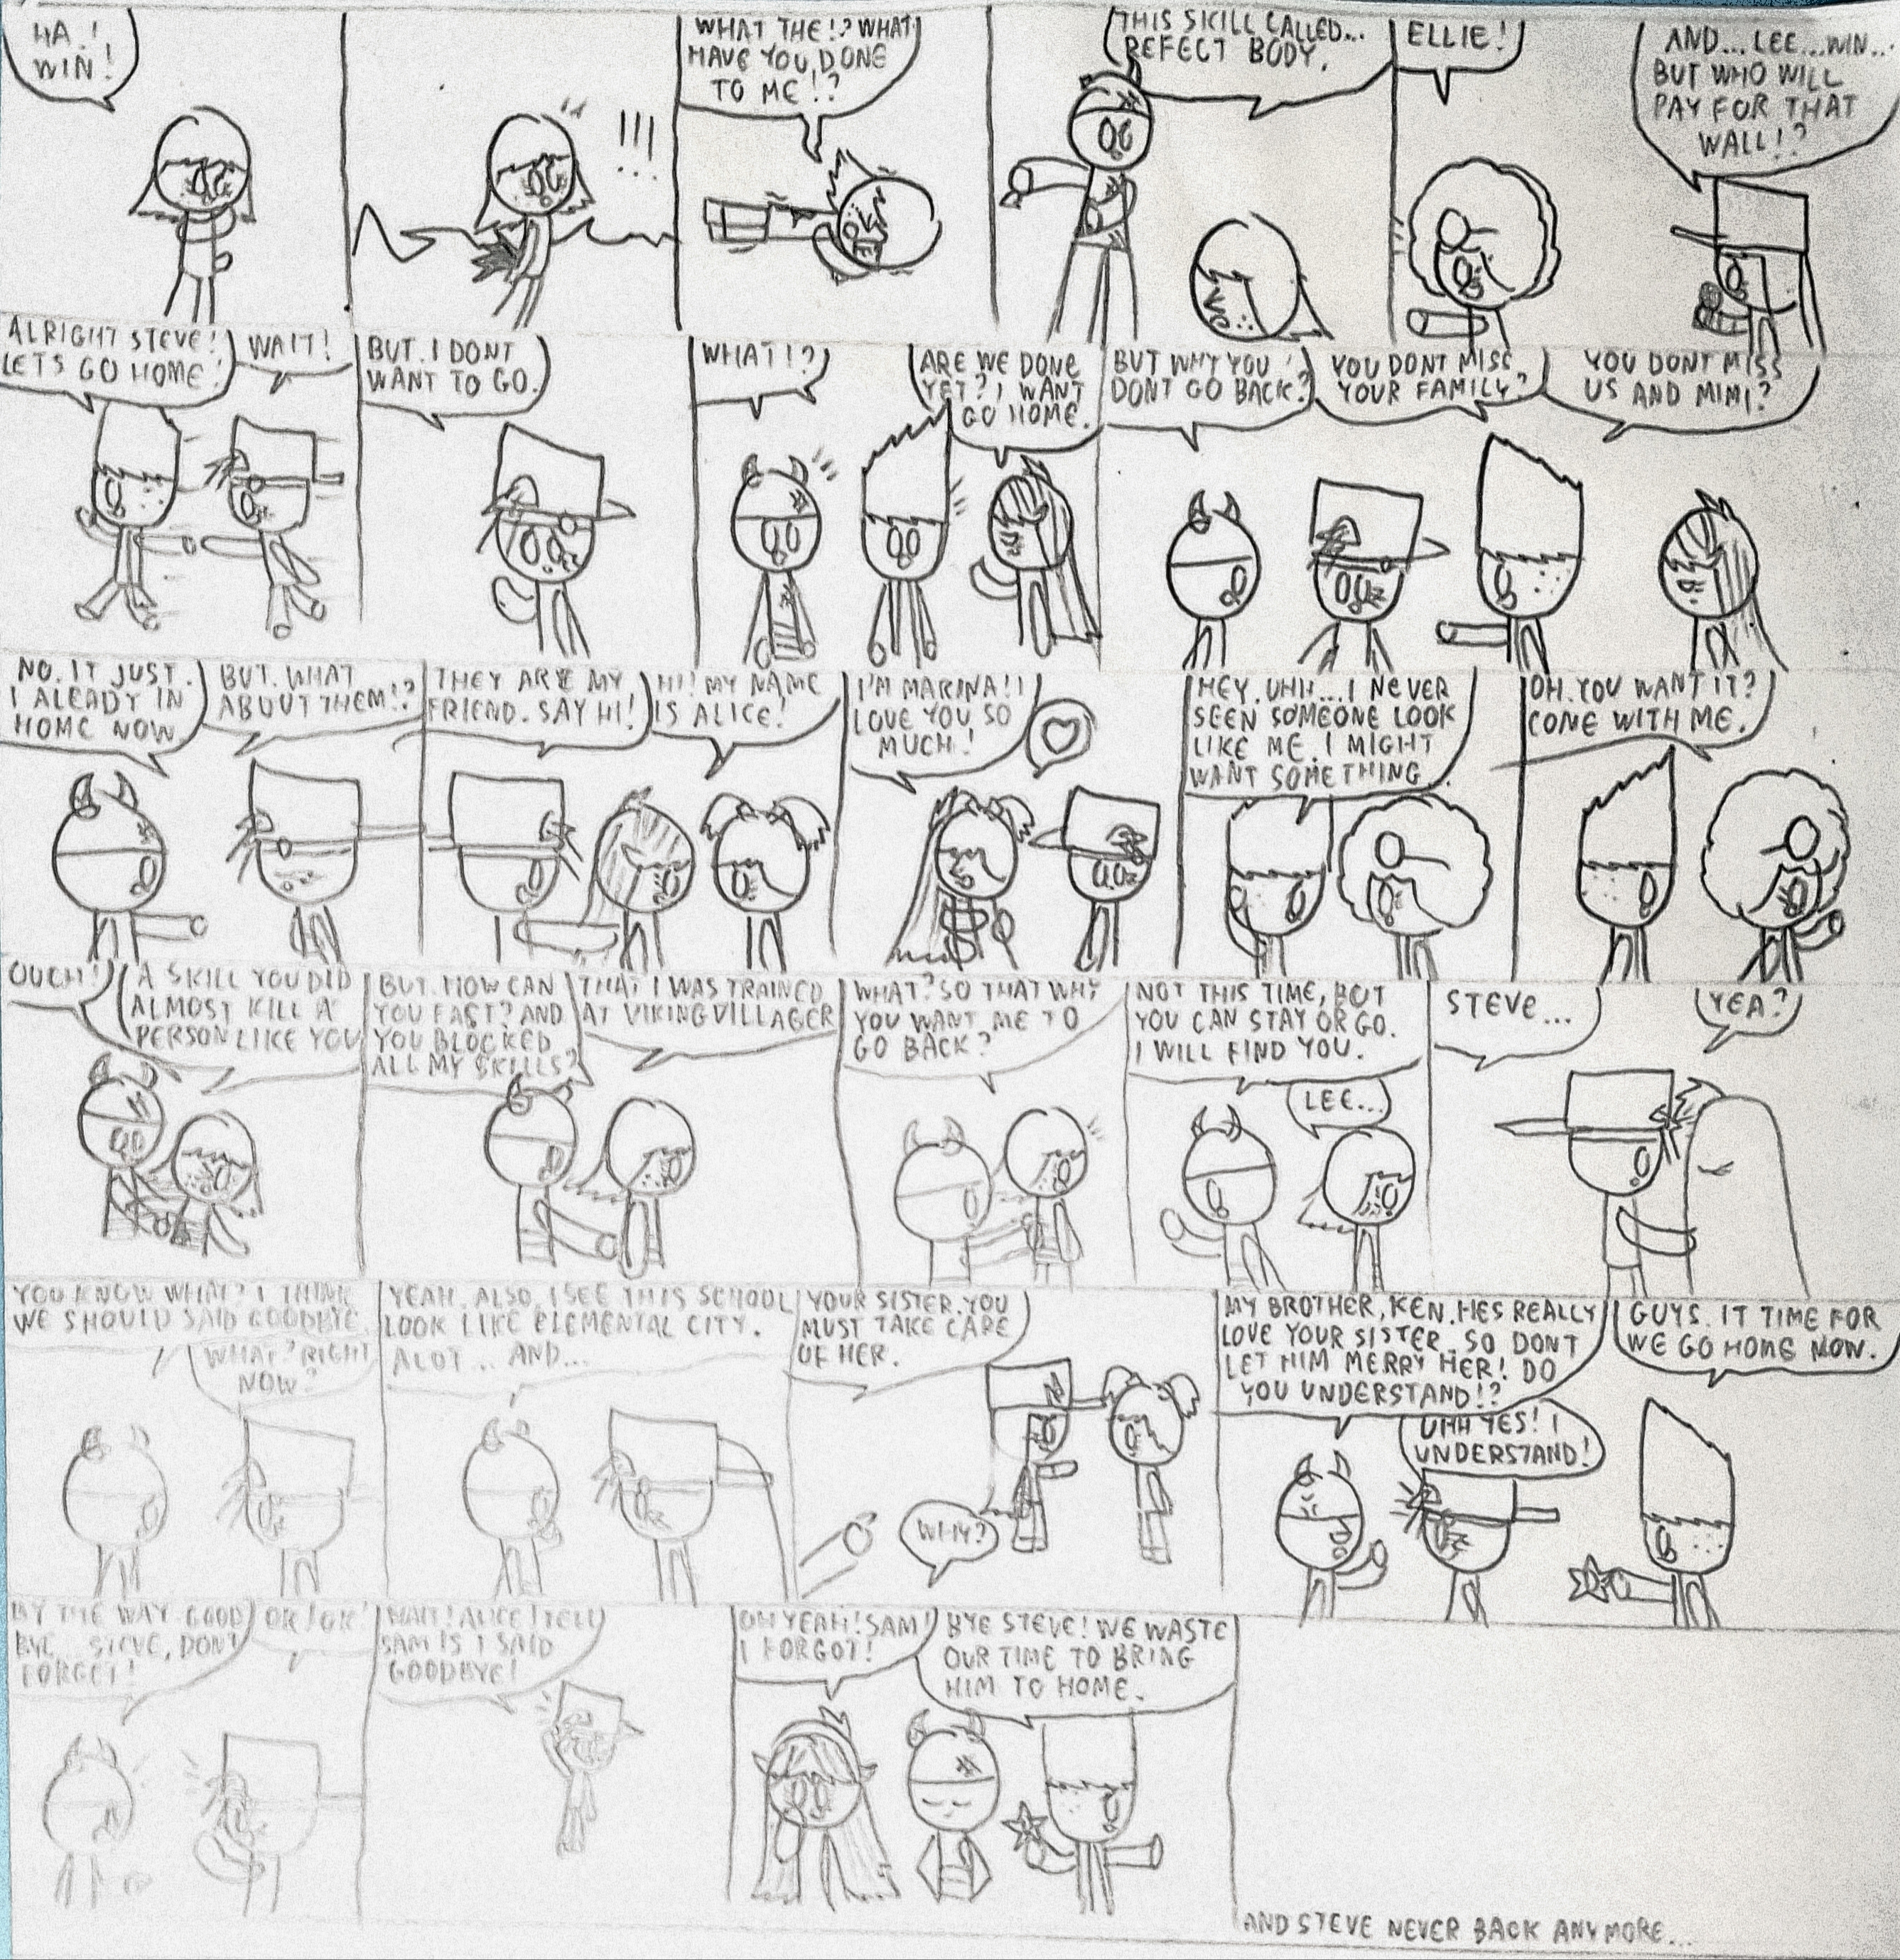 HA!
WIN!
WHAT THE!? WHAT
HAVE YOU DONE
TO ME!?
THIS SKILL CALLED...
REFECT BODY.
ELLIE!
AND... LEE... WIN...
BUT WHO WILL
PAY FOR THAT
WALL!?
ALRIGHT STEVE!
LETS GO HOME!
WAIT!
BUT. I DONT
WANT TO GO.
WHAT!?
ARE WE DONE
YET? I WANT
GO HOME.
BUT WHY YOU
DONT GO BACK?
YOU DONT MISS
YOUR FAMILY?
YOU DONT MISS
US AND MIMI?
NO. IT JUST.
I ALEADY IN
HOME NOW
BUT. WHAT
ABOUT THEM!?
THEY ARE MY
FRIEND. SAY HI!
HI! MY NAME
IS ALICE!
I'M MARINA!! I
LOVE YOU SO
MUCH!
HEY. UHH... I NEVER
SEEN SOMEONE LOOK
LIKE ME. I MIGHT
WANT SOMETHING...
OH. YOU WANT IT?
COME WITH ME.
OUCH!
A SKILL YOU DID
ALMOST KILL A
PERSON LIKE YOU
BUT. HOW CAN
YOU FAST? AND
YOU BLOCKED
ALL MY SKILLS?
THAT I WAS TRAINED
AT VIKING VILLAGER
WHAT? SO THAT WHY
YOU WANT ME TO
GO BACK?
NOT THIS TIME, BUT
YOU CAN STAY OR GO.
I WILL FIND YOU.
LEE...
STEVE...
YEA?
YOU KNOW WHAT? I THINK
WE SHOULD SAID GOODBYE.
WHAT? RIGHT
NOW?
YEAH. ALSO, I SEE THIS SCHOOL
LOOK LIKE ELEMENTAL CITY.
ALOT... AND...
YOUR SISTER. YOU
MUST TAKE CARE
OF HER.
WHY?
MY BROTHER, KEN. HES REALLY
LOVE YOUR SISTER. SO DONT
LET HIM MERRY HER! DO
YOU UNDERSTAND!?
UHH YES! I
UNDERSTAND!
GUYS. IT TIME FOR
WE GO HOME NOW.
BY THE WAY. GOOD
BYE... STEVE, DONT
FORGET!
OK! OK!
WAIT! ALICE! TELL
SAM IS I SAID
GOODBYE!
OH YEAH! SAM!
I FORGOT!
BYE STEVE! WE WASTE
OUR TIME TO BRING
HIM TO HOME.
AND STEVE NEVER BACK ANYMORE...